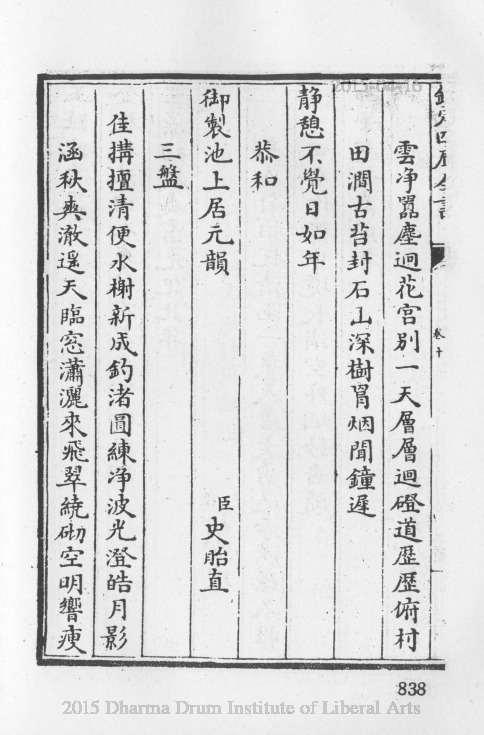 2015-04-16
欽定四庫全書
卷十
雲净嚣塵迥花宫别一天層層迴磴道歴歴俯村
田澗古苔封石山深樹罥烟聞鐘遲
静憩不覺日如年
恭和
御製池上居元韻
臣史貽直
三盤
佳搆擅清便水榭新成釣渚圓練净波光澄皓月影
涵秋爽澈遥天臨窓瀟灑來飛翠繞砌空明響瘦
838
2015 Dharma Drum Institute of Liberal Arts